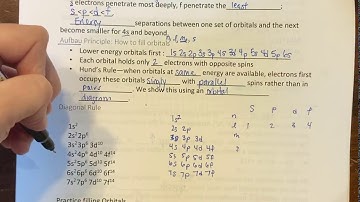 s electrons penetrate most deeply, f penetrate the least
s<p<d<f
Energy separations between one set of orbitals and the next
become smaller for 4s and beyond
Aufbau Principle: How to fill orbitals
• Lower energy orbitals first: 1s 2s 2p 3s 3p 4s 3d 4p 5s 4d 5p 6s
• Each orbital holds only 2 electrons with opposite spins
• Hund's Rule—when orbitals at same energy are available, electrons first
occupy these orbitals singly with parallel spins rather than in
pairs. We show this using an orbital
diagram
Diagonal Rule
s p d f
1s² 1s² n
2s² 2p⁶ 2s 2p l 1 2 3 4
3s² 3p⁶ 3d¹⁰ 3s 3p 3d m
4s² 4p⁶ 4d¹⁰ 4f¹⁴ 4s 4p 4d 4f
5s² 5p⁶ 5d¹⁰ 5f¹⁴ 5s 5p 5d 5f
6s² 6p⁶ 6d¹⁰ 6f¹⁴ 6s 6p 6d 6f
7s² 7p⁶ 7d¹⁰ 7f¹⁴ 7s 7p 7d 7f
Practice filling Orbitals